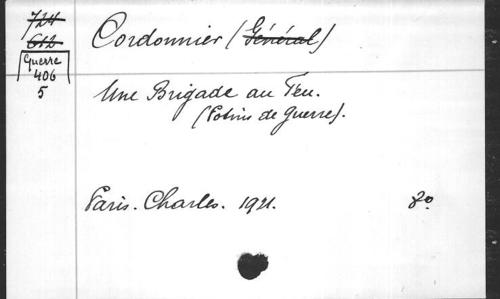 724
612
Guerre
406
5
Cordonnier (Général)
Une Brigade au Feu.
(Potins de Guerre).
Paris. Charles. 1921.
8°